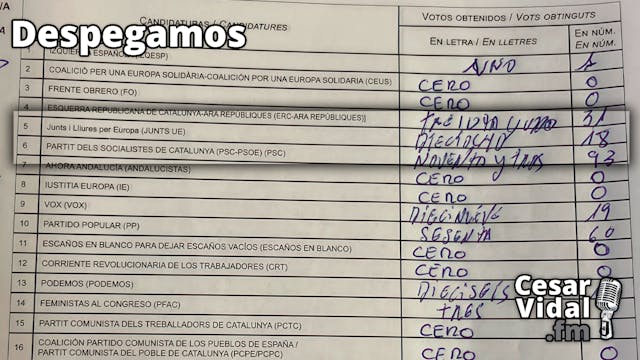 Despegamos
CANDIDATURAS / CANDIDATURES
VOTOS OBTENIDOS / VOTS OBTINGUTS
EN LETRA / EN LLETRES
EN NÚM.
EN NÚM.
1
2 COALICIÓ PER UNA EUROPA SOLIDÀRIA-COALICIÓN POR UNA EUROPA SOLIDARIA (CEUS) CERO 0
3 FRENTE OBRERO (FO) CERO 0
4 ESQUERRA REPUBLICANA DE CATALUNYA-ARA REPÚBLIQUES (ERC-ARA REPÚBLIQUES)] TREINTA y UNO 31
5 Junts i Lliures per Europa (JUNTS UE) DIECIOCHO 18
6 PARTIT DELS SOCIALISTES DE CATALUNYA (PSC-PSOE) (PSC) NOVENTA y TRES 93
7 AHORA ANDALUCÍA (ANDALUCISTAS) CERO 0
8 IUSTITIA EUROPA (IE) CERO 0
9 VOX (VOX) DIECINUEVE 19
10 PARTIDO POPULAR (PP) SESENTA 60
11 ESCAÑOS EN BLANCO PARA DEJAR ESCAÑOS VACÍOS (ESCAÑOS EN BLANCO) CERO 0
12 CORRIENTE REVOLUCIONARIA DE LOS TRABAJADORES (CRT) CERO
13 PODEMOS (PODEMOS) DIECISEIS
14 FEMINISTAS AL CONGRESO (PFAC) TRES
15 PARTIT COMUNISTA DELS TREBALLADORS DE CATALUNYA (PCTC) CERO
16 COALICIÓN PARTIDO COMUNISTA DE LOS PUEBLOS DE ESPAÑA /
PARTIT COMUNISTA DEL POBLE DE CATALUNYA (PCPE/PCPC) CERO 0
Cesar
Vidal
.fm